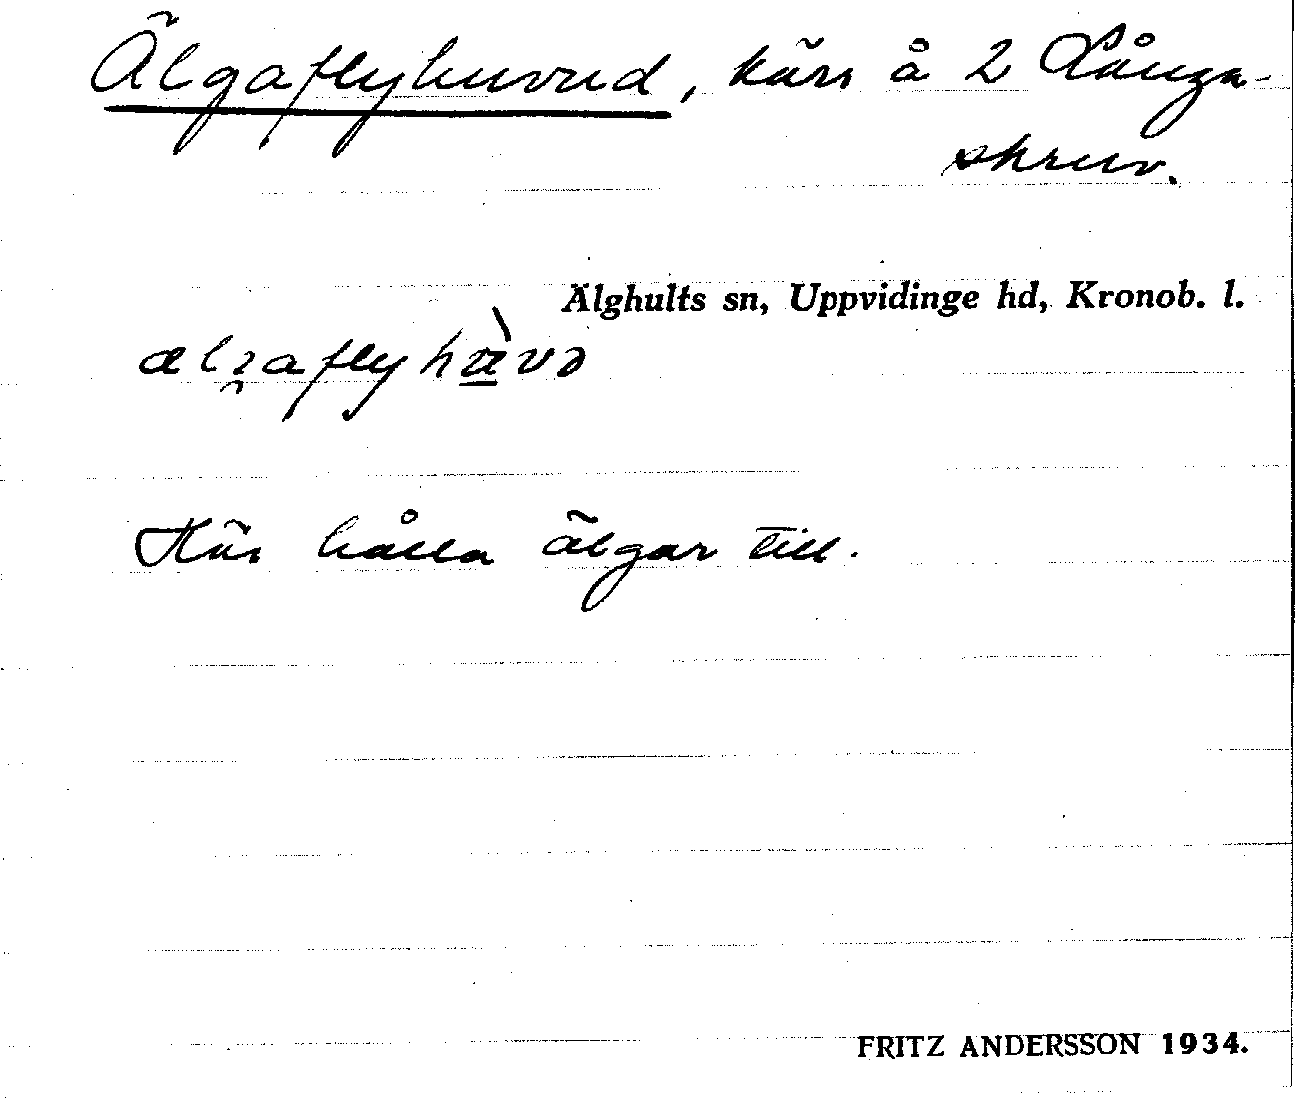 Älgaflyhuvud, kärr å 2 Långa-
skruv.
Älghults sn, Uppvidinge hd, Kronob. l.
Här hålla älgar till.
FRITZ ANDERSSON 1934.